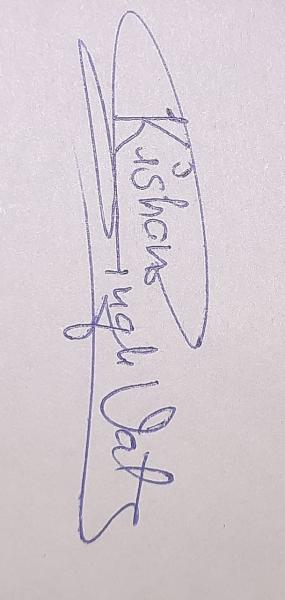 Kishan Singh Vats